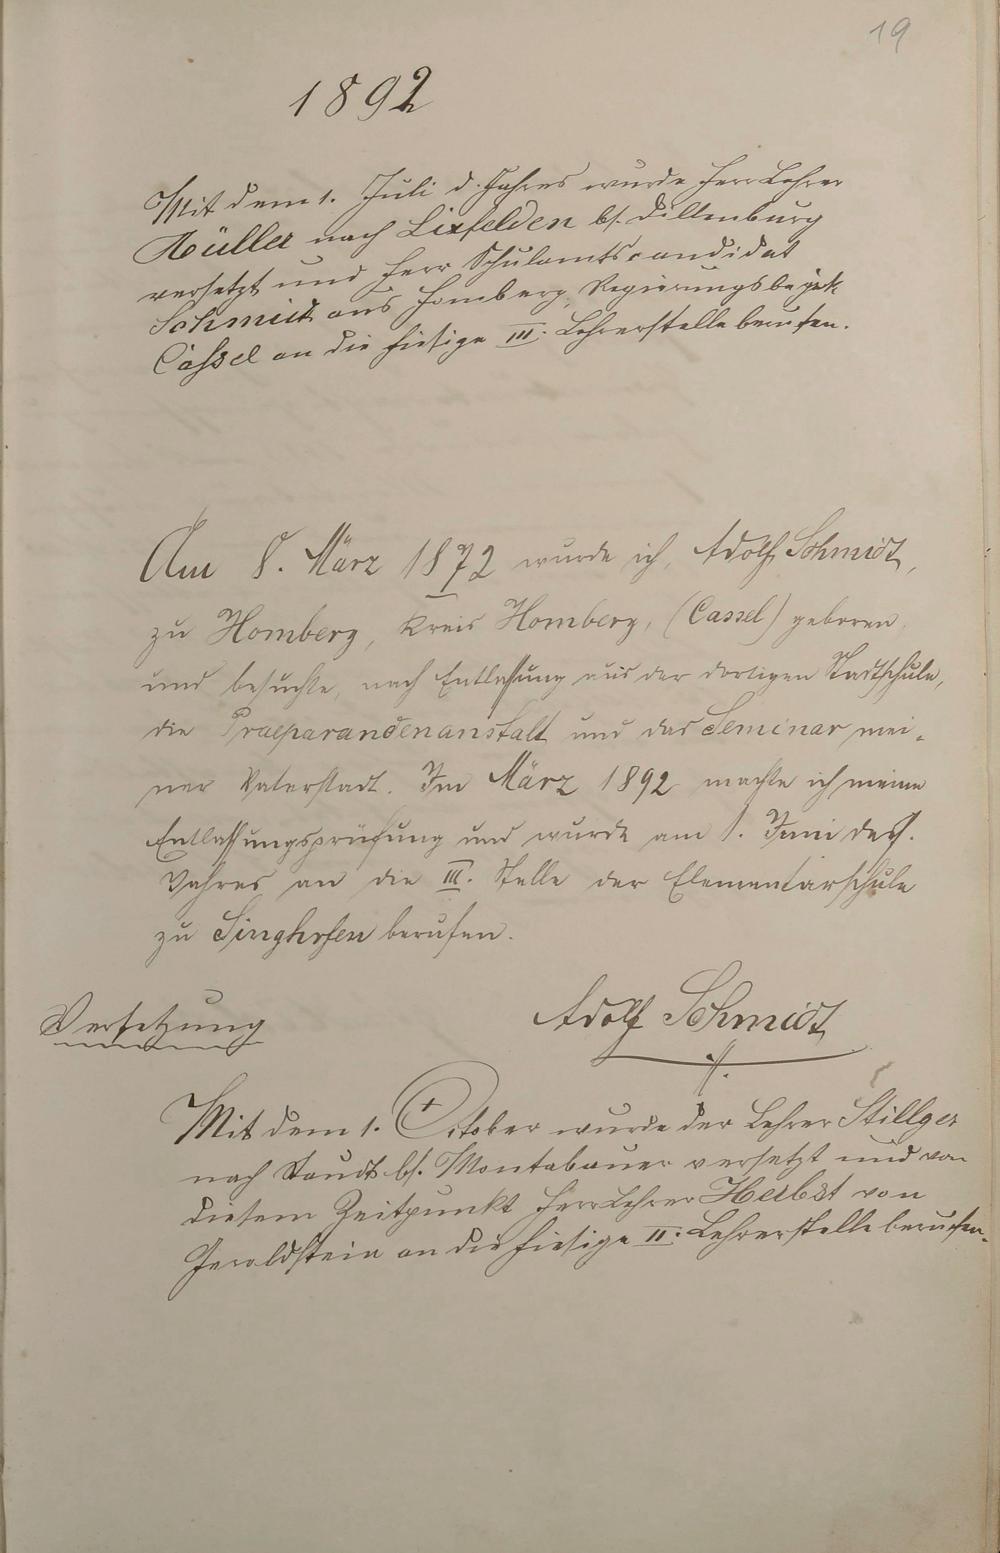 19
1892
Mit dem 1. Juli d. Jahres wurde Herr Lehrer
Müller nach Lixfelden bs. Dillenburg
versetzt und Herr Schulamtscandidat
Schmidt aus Homberg, Regierungsbezirk
Cassel an die hiesige III. Lehrerstelle berufen.
Am 8. März 1872 wurde ich, Adolf Schmidt,
zu Homberg, Kreis Homberg, (Cassel) geboren
und besuchte, nach Entlassung aus der dortigen Stadtschule,
die Praeparandenanstalt und das Seminar mei-
ner Vaterstadt. Im März 1892 machte ich meine
Entlassungsprüfung und wurde am 1. Juni dess.
Jahres an die III. Stelle der Elementarschule
zu Singhofen berufen.
Adolf Schmidt
Versetzung
Mit dem 1. October wurde der Lehrer Stillger
nach Staudt bs. Montabauer versetzt und von
diesem Zeitpunkt Herr Lehrer Herbst von
Geroldstein an die hiesige II. Lehrerstelle berufen.